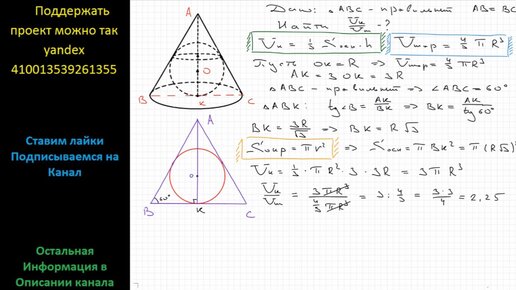 Поддержать
проект можно так
yandex
410013539261355
Ставим лайки
Подписываемся на
Канал
Остальная
Информация в
Описании канала
A
O
B
K
C
A
O
B
60°
K
C
Дано: △ABC - правильный AB = BC
Найти Vк/Vш - ?
Vк = 1/3 Sосн · h
Vшар = 4/3 π R³
Пусть OK = R ⇒ Vшар = 4/3 πR³
AK = 3 OK = 3R
△ABC - правильный ⇒ ∠ABC = 60°
△ABK: tg∠B = AK/BK ⇒ BK = AK/tg 60°
BK = 3R/√3 ⇒ BK = R√3
Sокр = πr² ⇒ Sосн = πBK² = π(R√3)²
Vк = 1/3 · π R² · 3 · 3R = 3πR³
Vк/Vш = 3πR³/(4/3 πR³) = 3 : 4/3 = 3·3/4 = 2,25